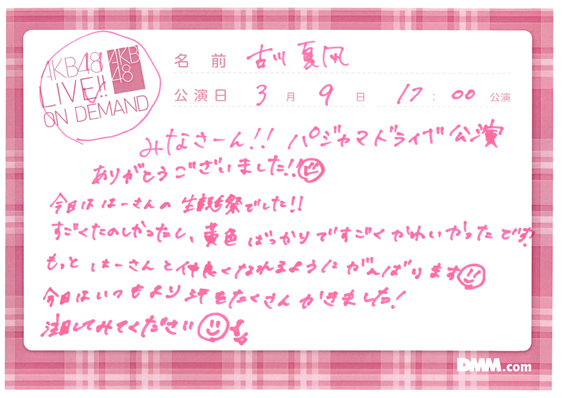 AKB48
LIVE!!
ON DEMAND
AKB
48
名前 古川夏凪
公演日 3月9日 17:00 公演
みなさーん!! パジャマドライブ公演
ありがとうございました!!
今日ははーさんの生誕祭でした!!
すごくたのしかったし、黄色ばっかりですごくかわいかったです?
もっとはーさんと仲良くなれるようにがんばります
今日はいつもより汗をたくさんかきました!
注目してみてください
DMM.com